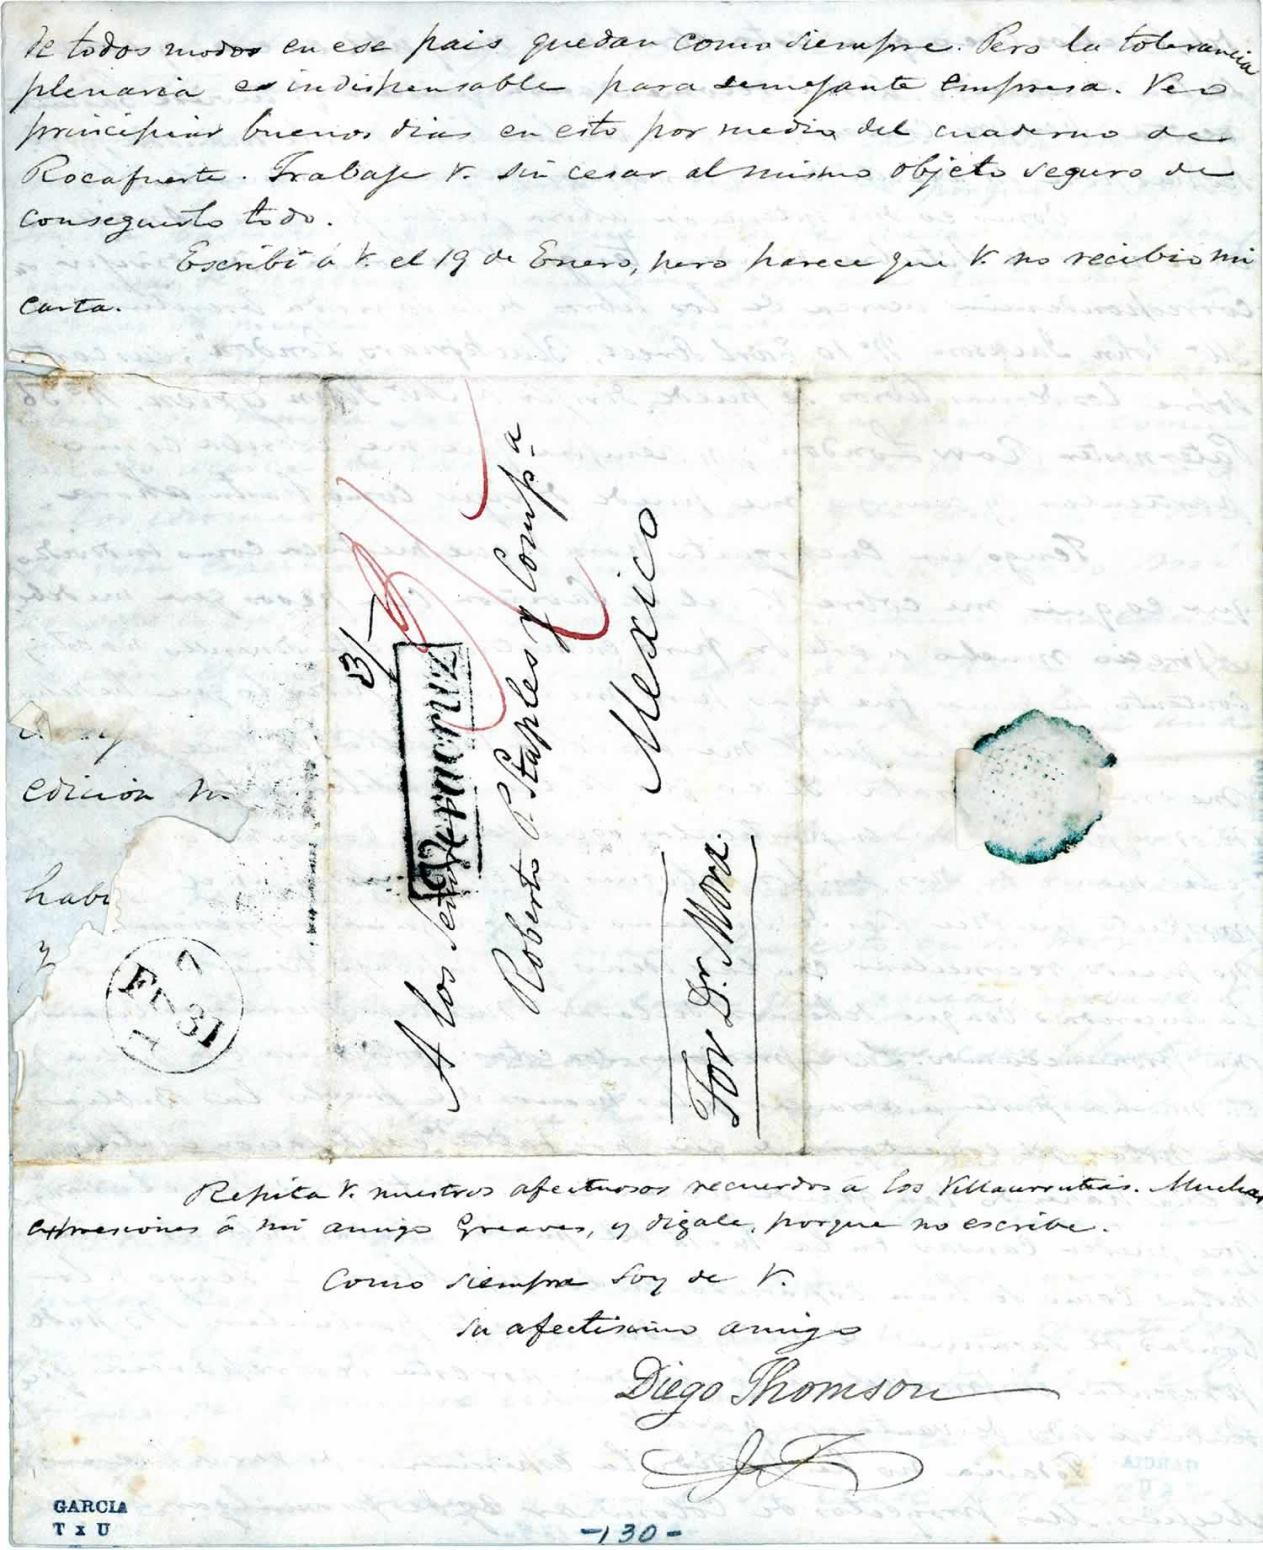 de todos modos en ese pais quedan como siempre. Pero la tolerancia
plenaria es indispensable para semejante empresa. Veo
principiar buenos dias en esto por medio del cuaderno de
Rocafuerte. Trabaje V. sin cesar al mismo objeto seguro de
conseguirlo todo.
Escribí á V. el 19 de Enero, pero parece que V. no recibio mi
carta.
edicion
habi
y
7
FE
1831
3/-
Veracruz
A los Señores
Roberto P. Staples y Compª
Mexico
For Dr. Mora.
Repita V. nuestros afectuosos recuerdos á los Villaurrutias. Muchas
expresiones á mi amigo Greaves, y digale, porque no escribe.
Como siempre soy de V.
su afectisimo amigo
Diego Thomson
GARCIA
T x U
-130-